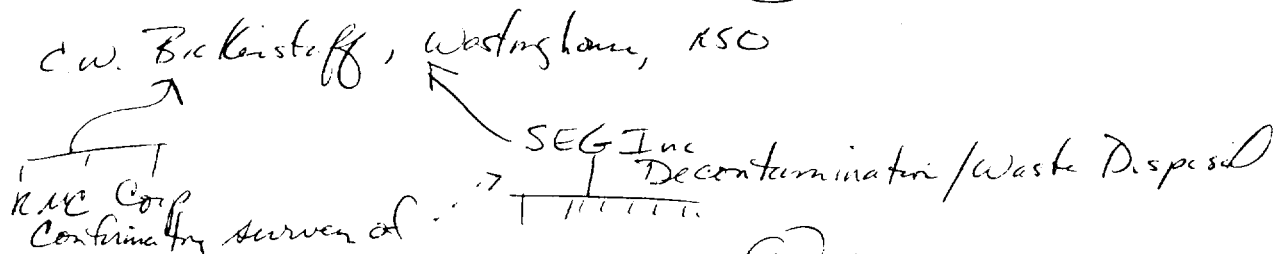 C.W. Bickerstaff, Westinghouse, RSO
SEG Inc
Decontamination/Waste Disposal
RMC Corp
Confirmatory survey of